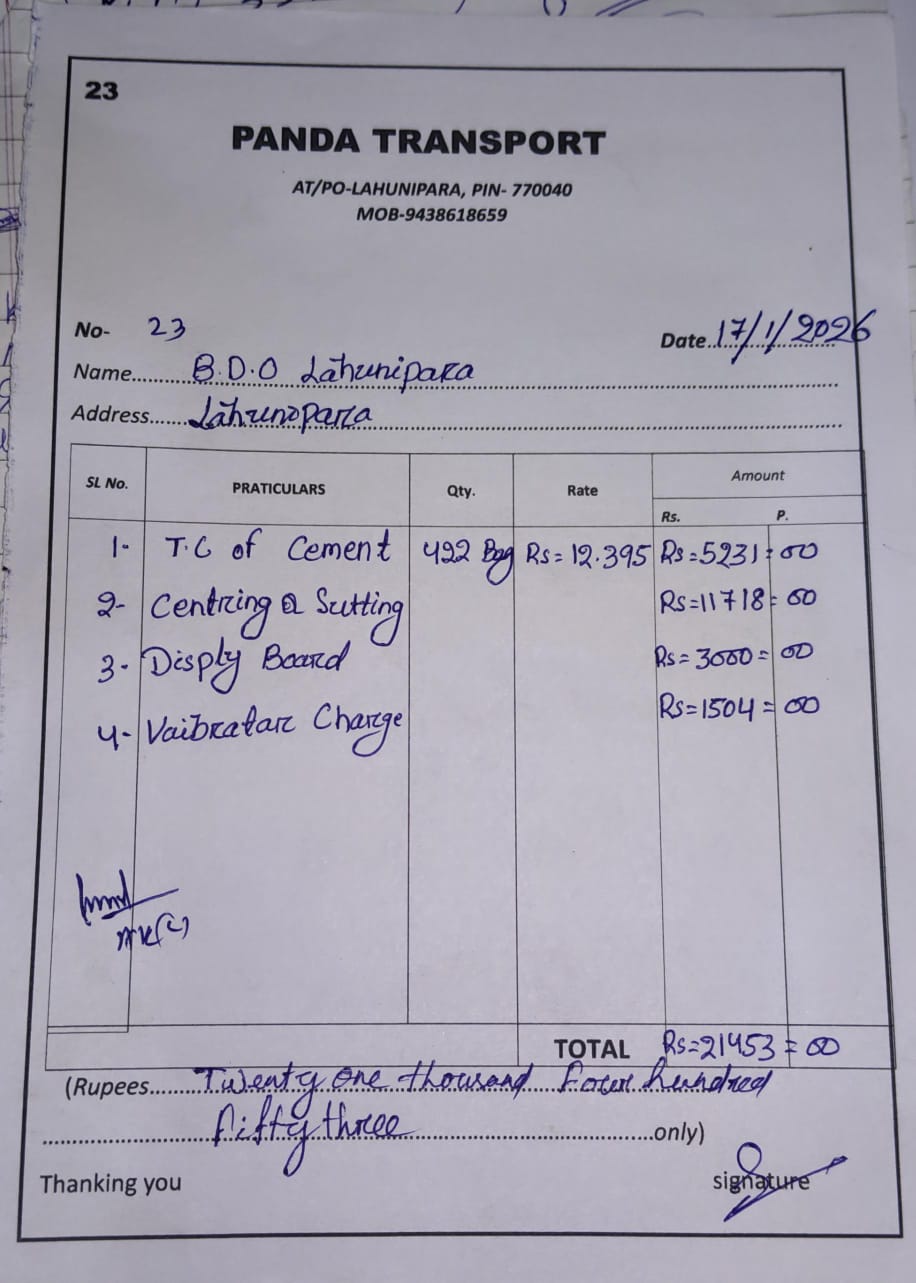 23
PANDA TRANSPORT
AT/PO-LAHUNIPARA, PIN- 770040
MOB-9438618659
No- 23
Date..17/1/2026
Name......B.D.O Lahunipara
Address......Lahunipara
SL No. PRATICULARS Qty. Rate Amount
Rs. P.
1- T.C of Cement 422 Bag Rs= 12.395 Rs=5231=00
2- Centring & Sutting Rs=11718=00
3- Disply Board Rs=3000=00
4- Vaibratar Charge Rs=1504=00
TOTAL Rs=21453=00
(Rupees......Twenty one thousand Four hundred
fifty three......only)
Thanking you signature